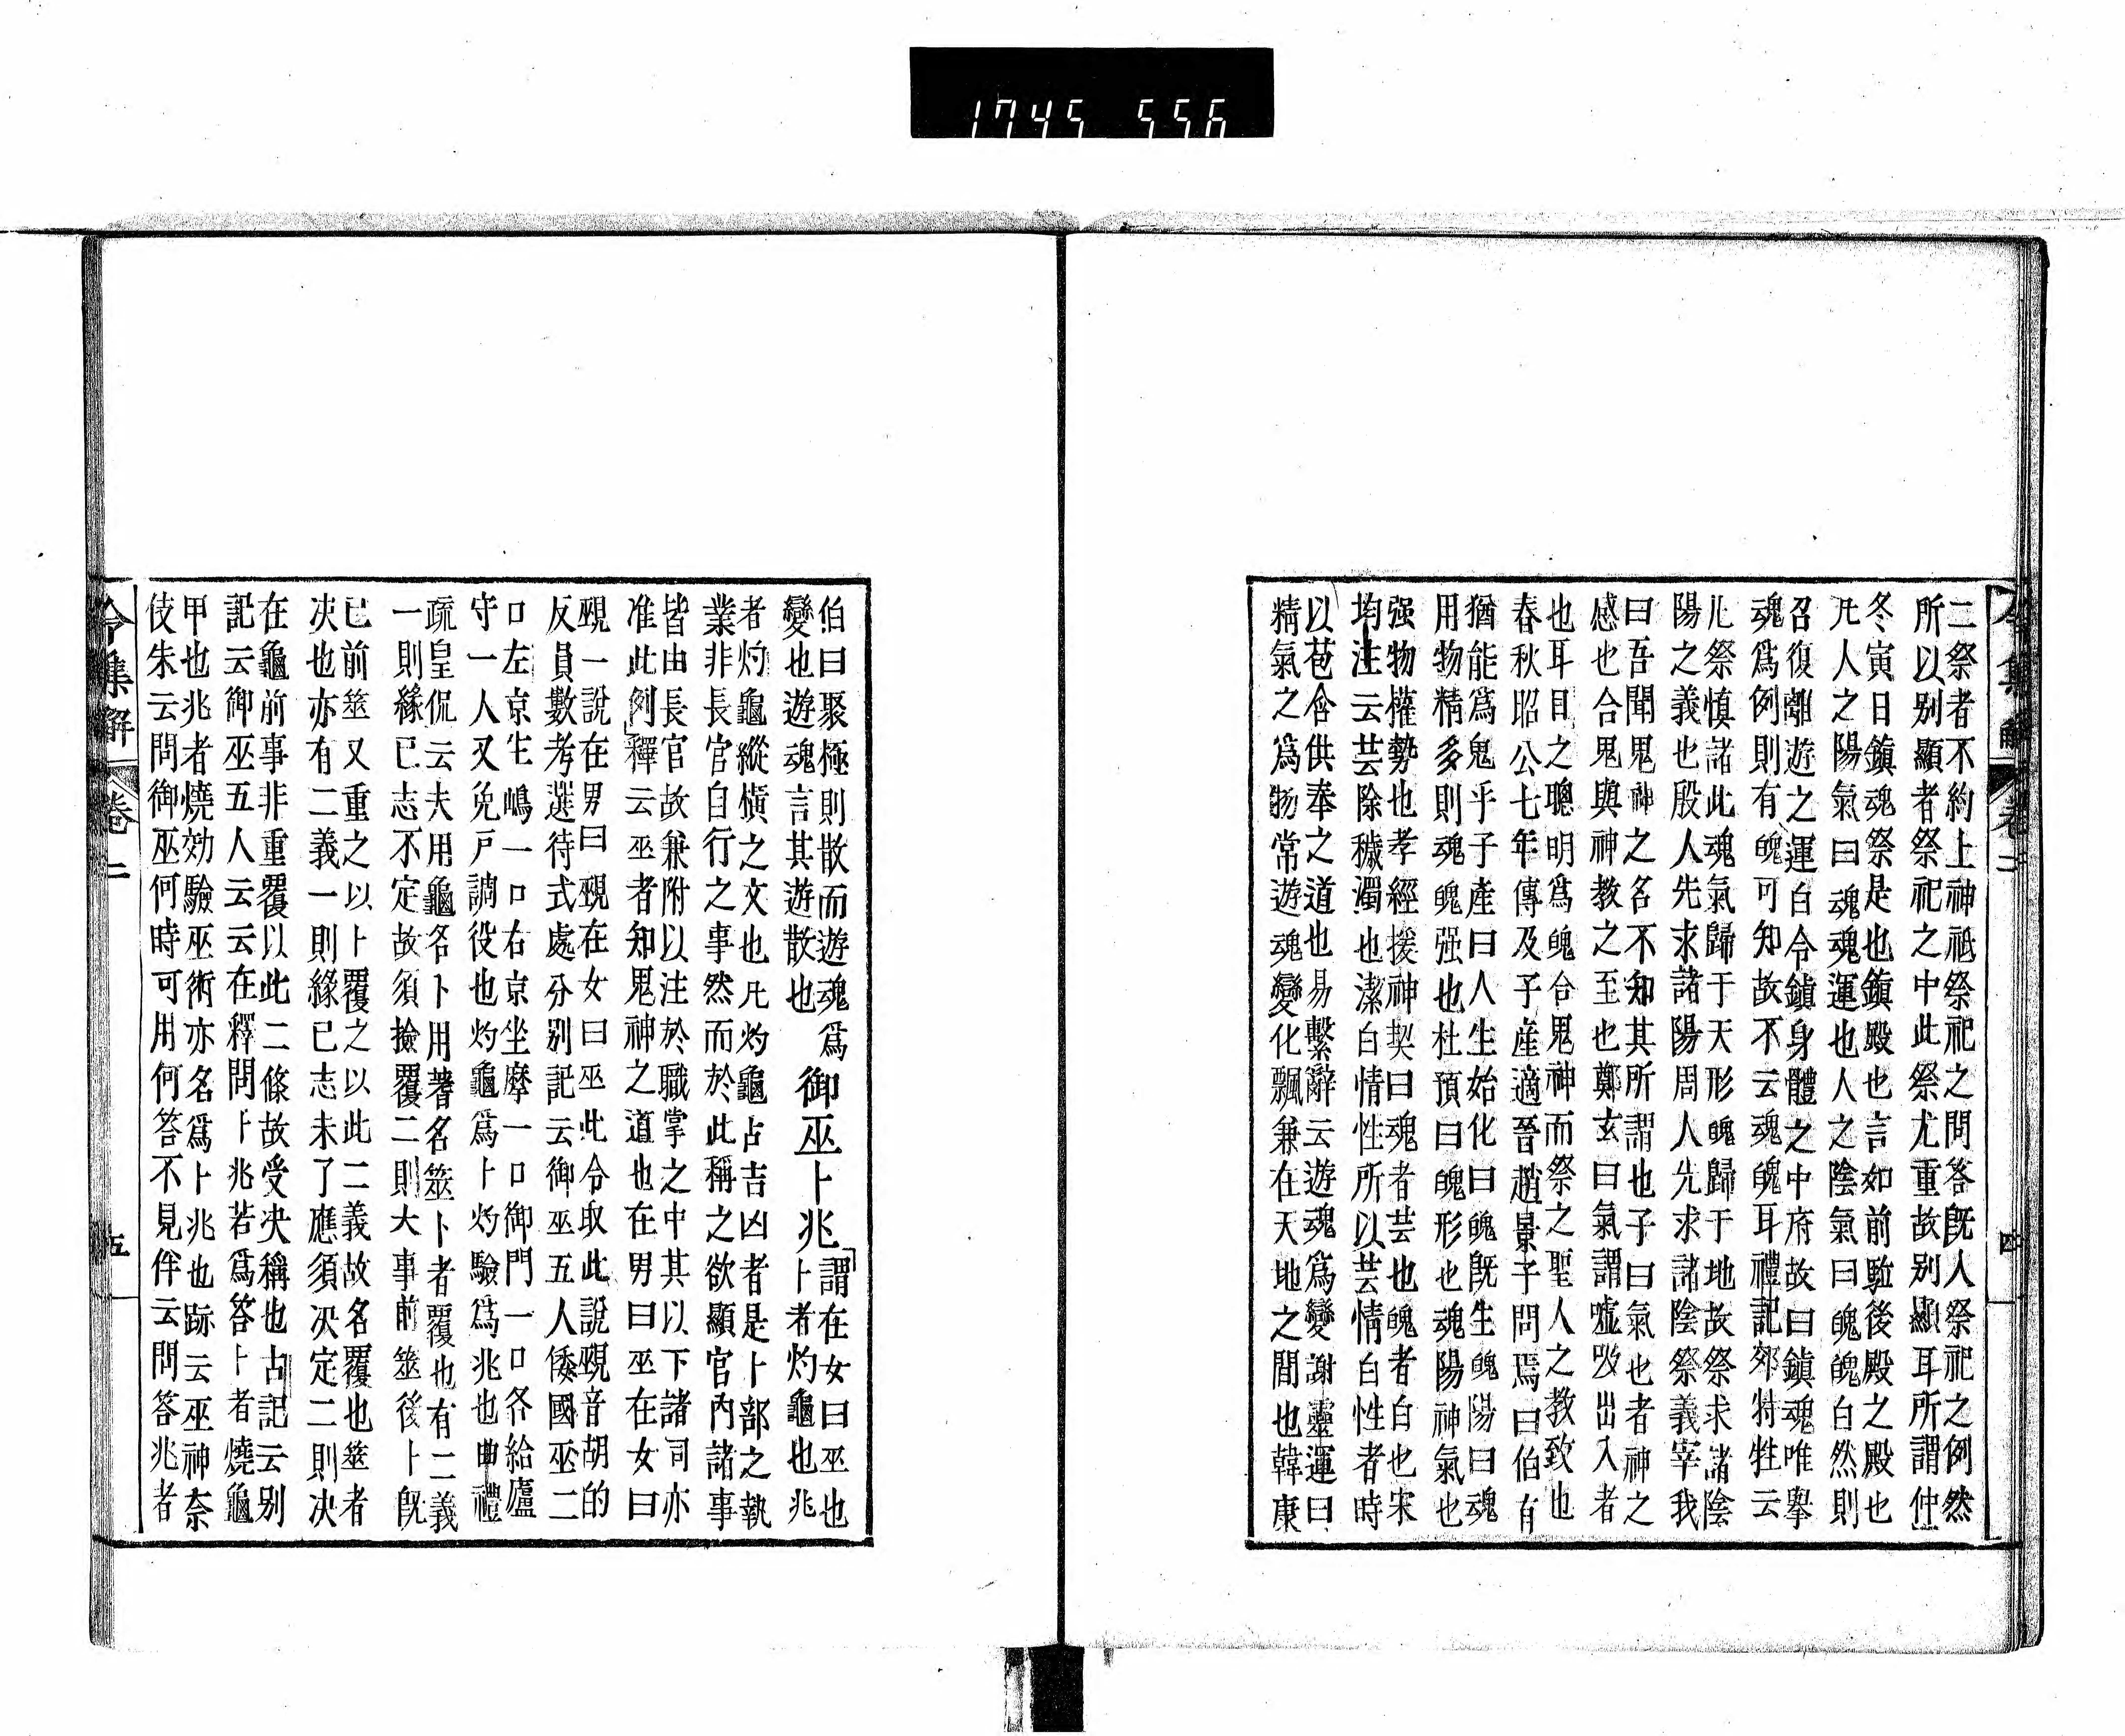 1745 556
令集解 卷二 四
二祭者不約上神祇祭祀之問答旣人祭祀之例然
所以别顯者祭祀之中此祭尤重故别顯耳所謂仲
冬寅日鎭魂祭是也鎭殿也言如前駈後殿之殿也
凡人之陽氣曰魂魂運也人之陰氣曰魄魄白然則
召復離遊之運白令鎭身體之中府故曰鎭魂唯擧
魂爲例則有魄可知故不云魂魄耳禮記郊特牲云
凡祭慎諸此魂氣歸于天形魄歸于地故祭求諸陰
陽之義也殷人先求諸陽周人先求諸陰祭義宰我
曰吾聞鬼神之名不知其所謂也子曰氣也者神之
感也合鬼與神教之至也鄭玄曰氣謂嘘吸出入者
也耳目之聰明爲魄合鬼神而祭之聖人之教致也
春秋昭公七年傳及子産適晉趙景子問焉曰伯有
猶能爲鬼乎子產曰人生始化曰魄旣生魄陽曰魂
用物精多則魂魄强也杜預曰魄形也魂陽神氣也
强物權勢也孝經援神契曰魂者芸也魄者白也宋
均注云芸除穢濁也潔白情性所以芸情白性者時
以苞含供奉之道也易繫辭云遊魂爲變謝靈運曰
精氣之爲物常遊魂變化飄兼在天地之間也韓康
伯曰聚極則散而遊魂爲
變也遊魂言其遊散也
御巫卜兆
謂在女曰巫也
卜者灼龜也兆
者灼龜縱横之文也凡灼龜占吉凶者是卜部之執
業非長官自行之事然而於此稱之欲顯官內諸事
皆由長官故兼附以注於職掌之中其以下諸司亦
准此例釋云巫者知鬼神之道也在男曰巫在女曰
覡一說在男曰覡在女曰巫此令取此說覡音胡的
反員數考選待式處分别記云御巫五人倭國巫二
口左京生嶋一口右京坐摩一口御門一口各給廬
守一人又免戸調役也灼龜爲卜灼驗爲兆也曲禮
疏皇侃云夫用龜名卜用蓍名筮卜者覆也有二義
一則緣已志不定故須撿覆二則大事前筮後卜旣
已前筮又重之以卜覆之以此二義故名覆也筮者
决也亦有二義一則緣已志未了應須决定二則决
在龜前事非重覆以此二條故受决稱也古記云别
記云御巫五人云云在釋問卜兆若爲答卜者燒龜
甲也兆者燒効驗巫術亦名爲卜兆也跡云巫神奈
伎朱云問御巫何時可用何答不見伴云問答兆者
令集解 卷二 五